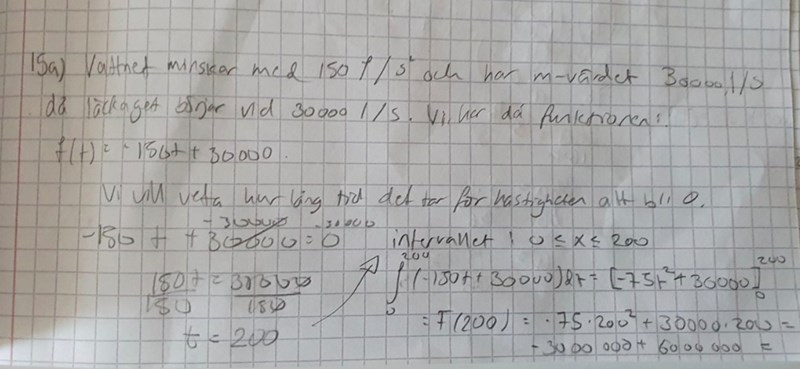 15a) Vattnet minskar med 150 l/s² och har m-värdet 30000 l/s
då läckaget börjar vid 30000 l/s. Vi har då funktionen:
f(t) = -150t + 30000.
Vi vill veta hur lång tid det tar för hastigheten att bli 0.
-30000 -30000
-150 t + 30000 = 0 intervallet: 0 ≤ x ≤ 200
150t/150 = 30000/150 ∫₀²⁰⁰ (-150t + 30000)dt = [-75t² + 30000]₀²⁰⁰
t = 200 = F(200) = -75·200² + 30000·200 =
-3000 000 + 6000 000 =